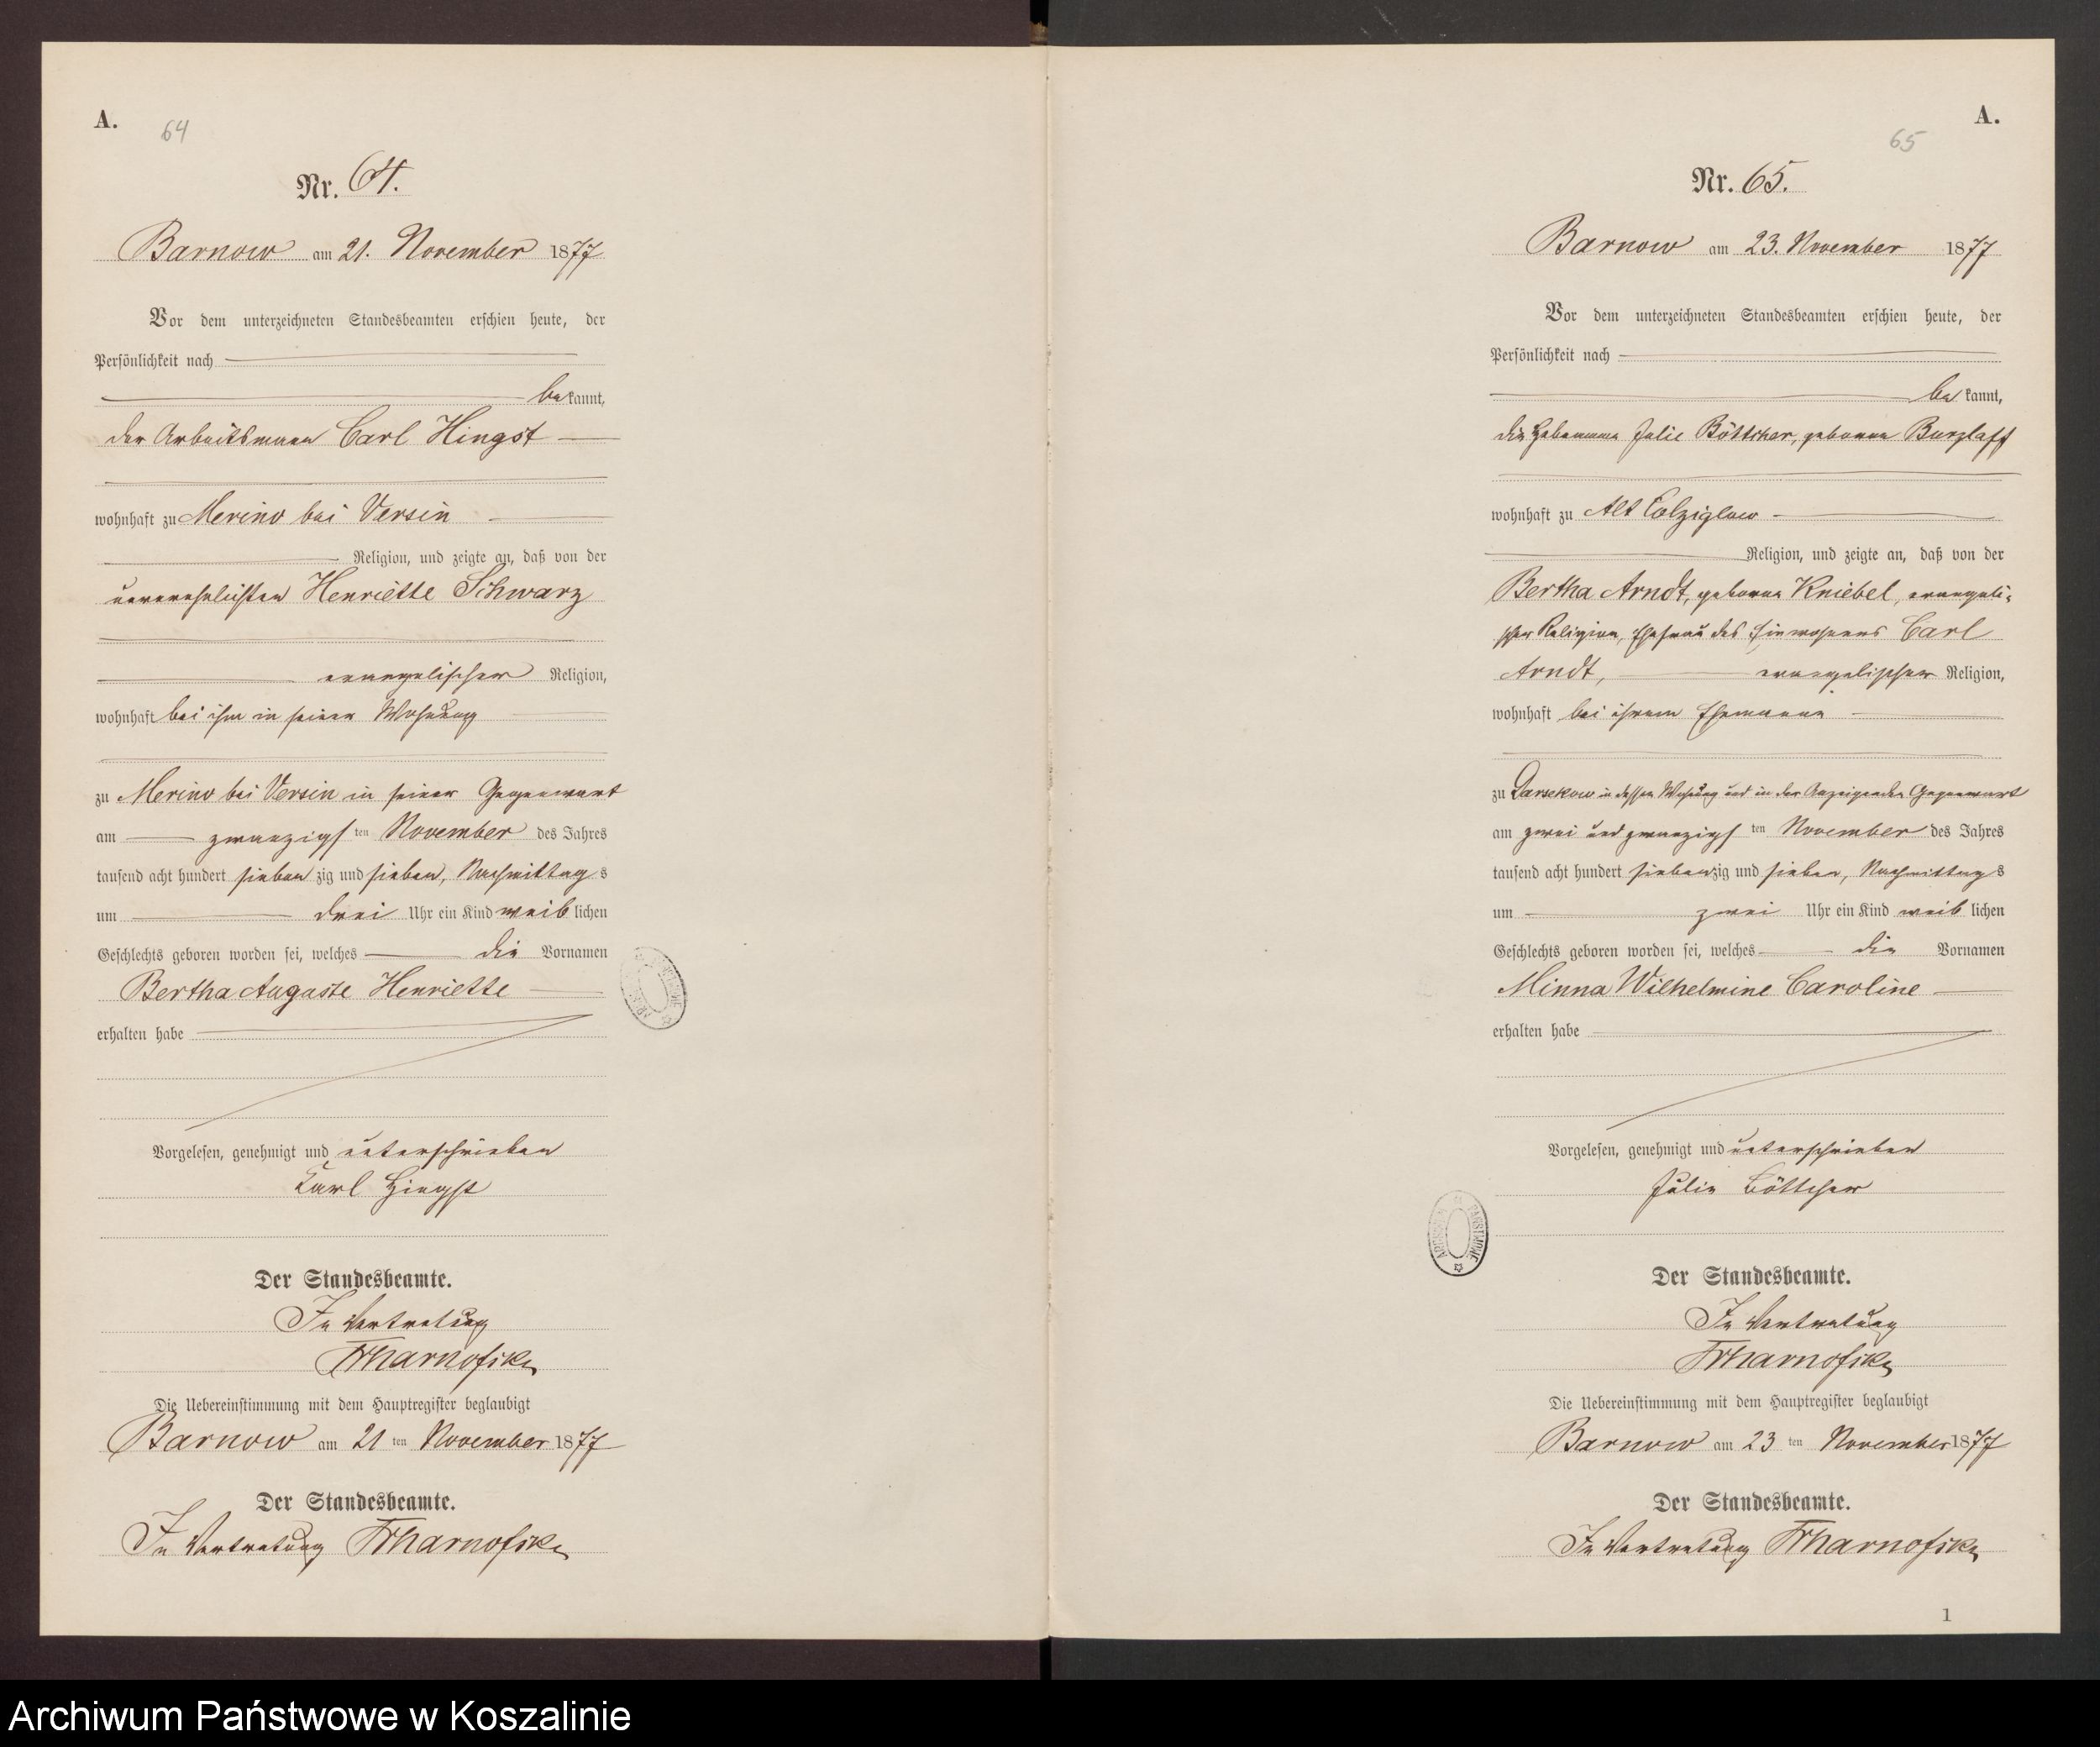 A.
64
Nr. 64.
Barnow am 21. November 1877
Vor dem unterzeichneten Standesbeamten erschien heute, der
Persönlichkeit nach
bekannt,
der Arbeitsmann Carl Hingst
wohnhaft zu Merino bei Versin
Religion, und zeigte an, daß von der
unverehelichten Henriette Schwarz
evangelischer Religion,
wohnhaft bei ihm in seiner Wohnung
zu Merino bei Versin in seiner Gegenwart
am zwanzigsten November des Jahres
tausend acht hundert siebenzig und sieben, Nachmittags
um drei Uhr ein Kind weiblichen
Geschlechts geboren worden sei, welches die Vornamen
Bertha Auguste Henriette
erhalten habe
Vorgelesen, genehmigt und unterschrieben
Karl Hingst
Der Standesbeamte.
In Vertretung
Die Uebereinstimmung mit dem Hauptregister beglaubigt
Barnow am 21ten November 1877
Der Standesbeamte.
In Vertretung
A.
65
Nr. 65.
Barnow am 23. November 1877
Vor dem unterzeichneten Standesbeamten erschien heute, der
Persönlichkeit nach
bekannt,
die Hebamme Julie Böttcher, geborne Burzlaff
wohnhaft zu Alt Colziglow
Religion, und zeigte an, daß von der
Bertha Arndt, geborne Kniebel, evangeli-
scher Religion, Ehefrau des Einwohners Carl
Arndt, evangelischer Religion,
wohnhaft bei ihrem Ehemanne
zu Darsekow in dessen Wohnung und in der Anzeigenden Gegenwart
am zwei und zwanzigsten November des Jahres
tausend acht hundert siebenzig und sieben, Nachmittags
um zwei Uhr ein Kind weiblichen
Geschlechts geboren worden sei, welches die Vornamen
Minna Wilhelmine Caroline
erhalten habe
Vorgelesen, genehmigt und unterschrieben
Julie Böttcher
Der Standesbeamte.
In Vertretung
Die Uebereinstimmung mit dem Hauptregister beglaubigt
Barnow am 23ten November 1877
Der Standesbeamte.
In Vertretung
1
Archiwum Państwowe w Koszalinie